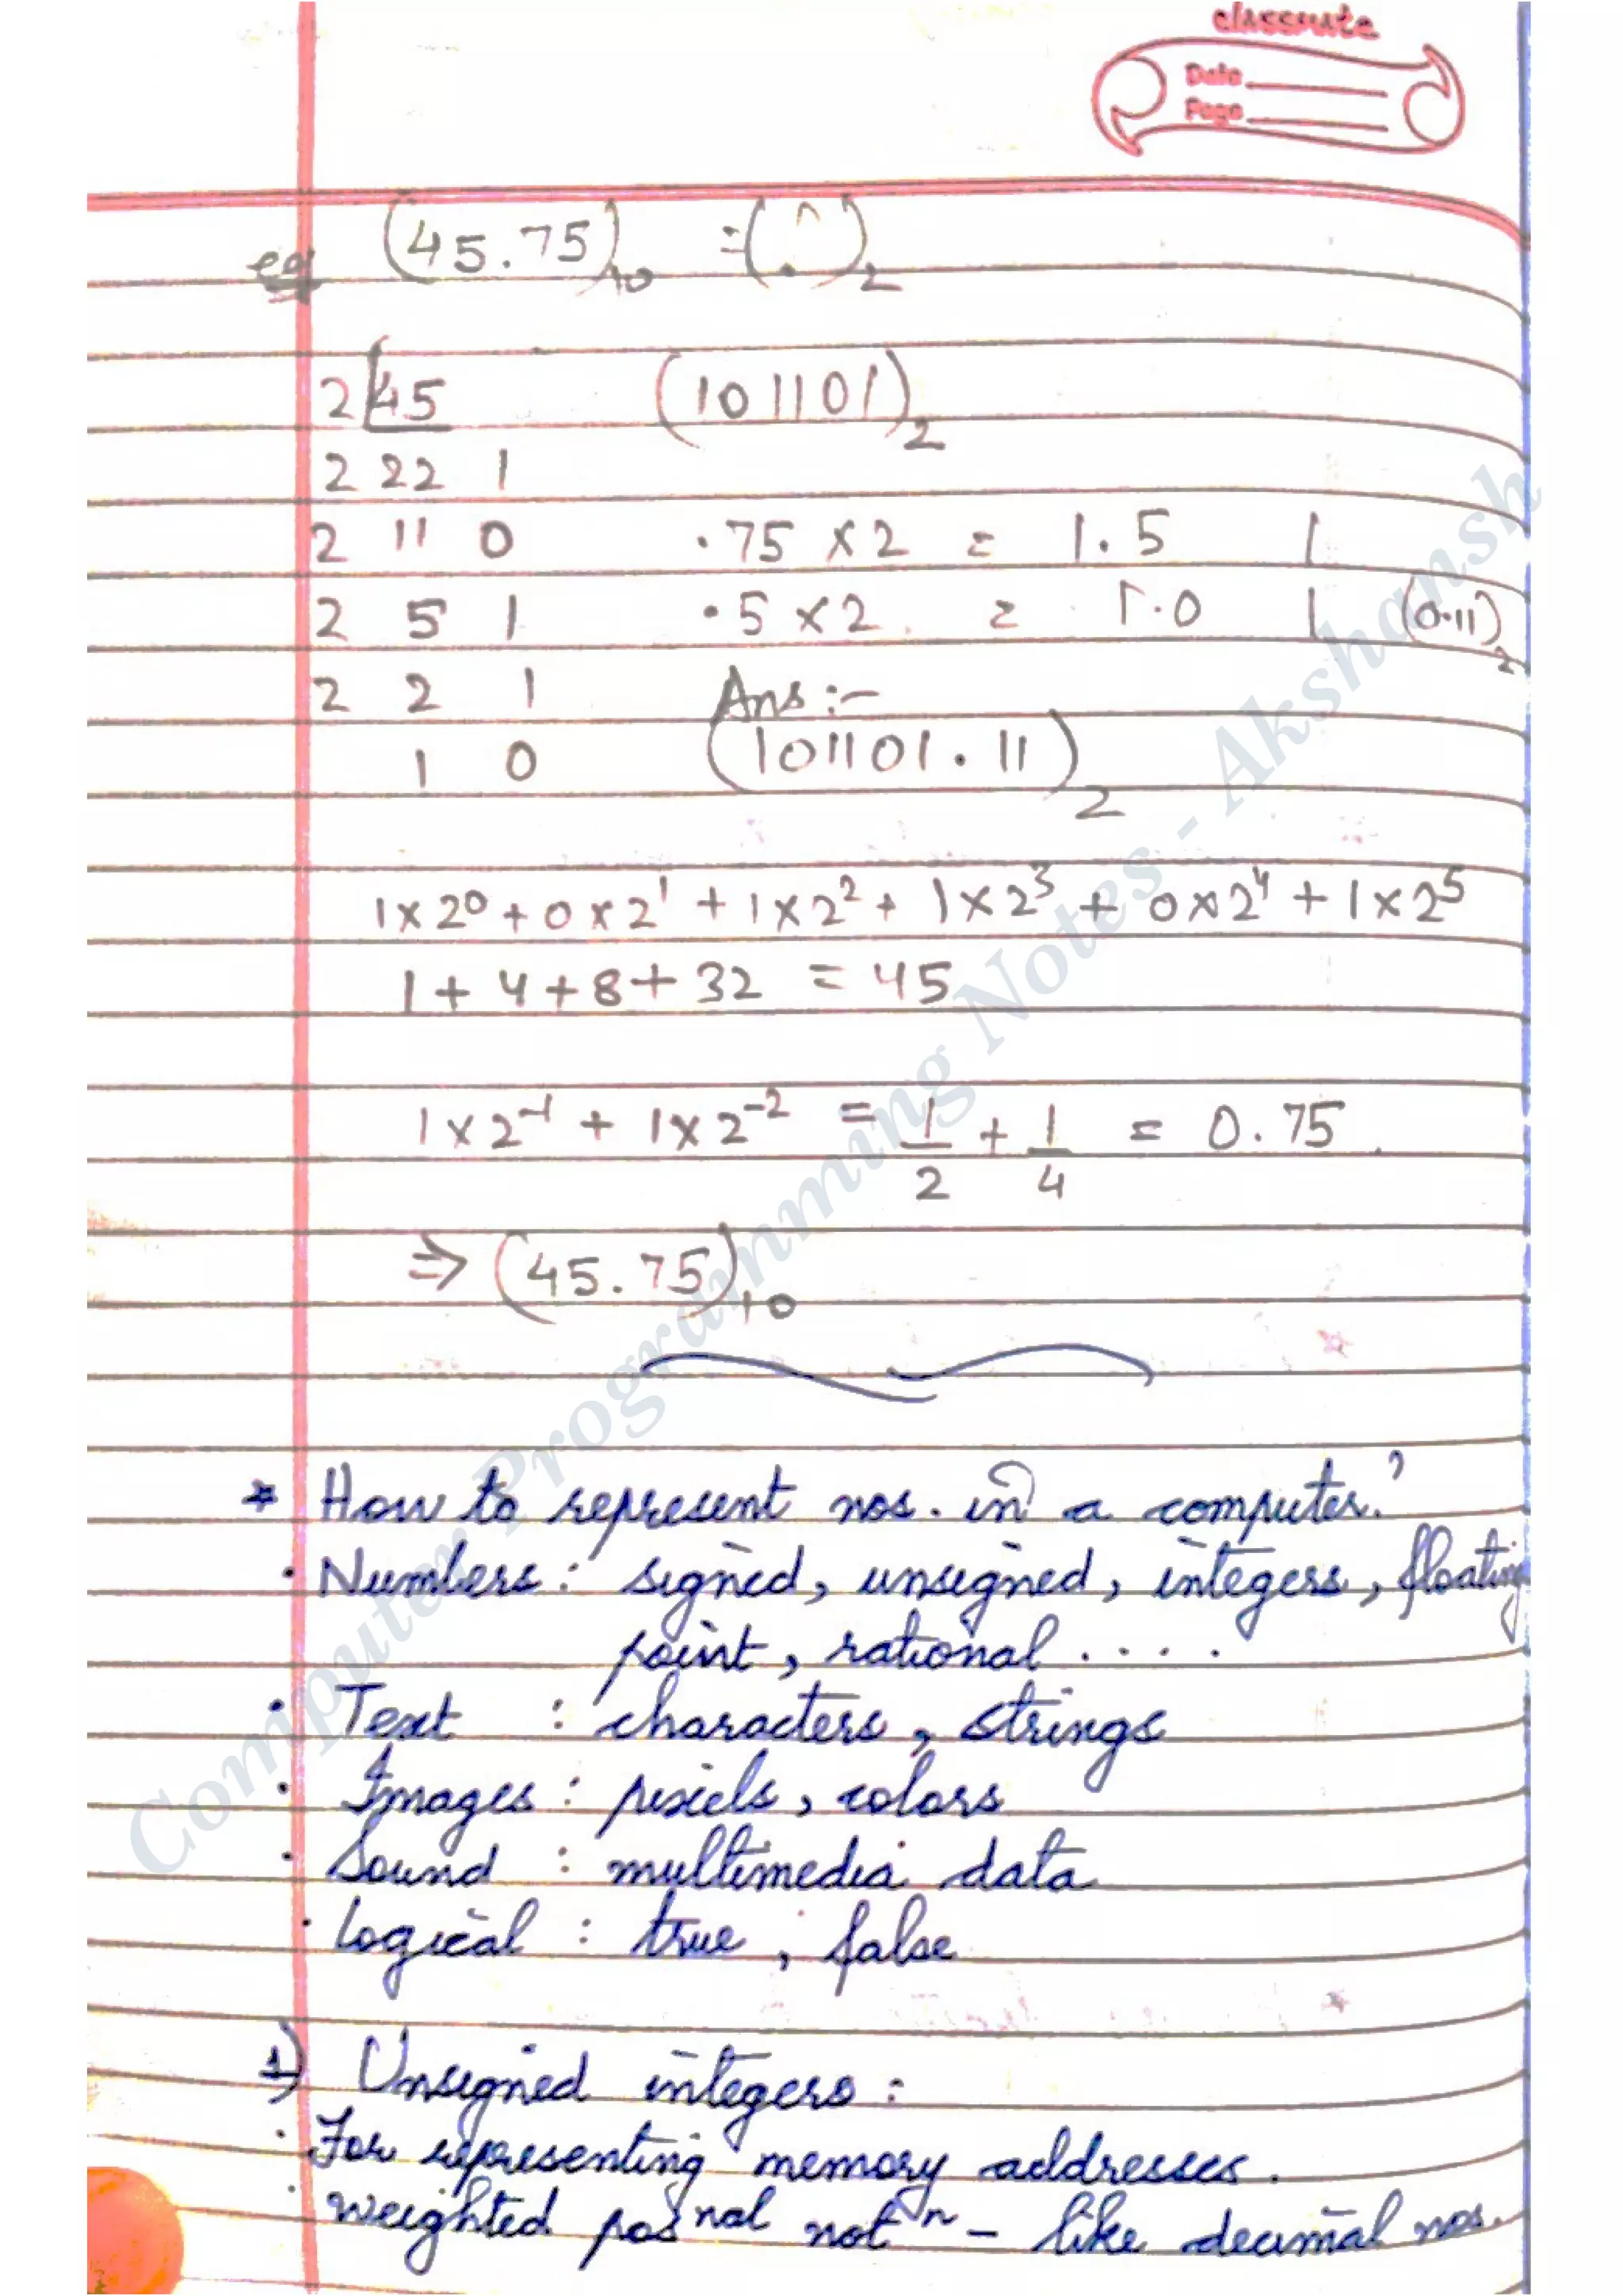 classmate
Date
Page
eg (45.75)₁₀ = ( . )₂
2 45 (101101)₂
2 22 1
2 11 0 .75 × 2 = 1.5 1
2 5 1 .5 × 2 = 1.0 1 (0.11)₂
2 2 1 Ans :-
1 0 (101101.11)₂
1×2⁰ + 0×2¹ + 1×2² + 1×2³ + 0×2⁴ + 1×2⁵
1 + 4 + 8 + 32 = 45
1×2⁻¹ + 1×2⁻² = 1/2 + 1/4 = 0.75
⇒ (45.75)₁₀
* How to represent nos. in a computer?
· Numbers : signed, unsigned, integers, floating
point, rational ....
· Text : characters, strings
· Images : pixels, colors
· Sound : multimedia data
· Logical : true, false
1) Unsigned integers :
· For representing memory addresses.
· Weighted posⁿᵃˡ notⁿ - like decimal nos.
Computer Programming Notes - Akshansh